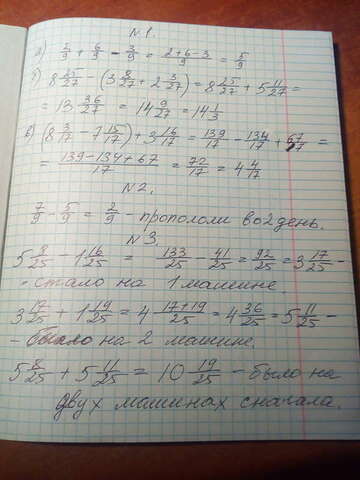 N 1.
а) 2/9 + 6/9 - 3/9 = 2+6-3/9 = 5/9
б) 8 25/27 - (3 8/27 + 2 3/27) = 8 25/27 + 5 11/27 =
= 13 36/27 = 14 9/27 = 14 1/3
в) (8 3/17 - 7 15/17) + 3 16/17 = 139/17 - 134/17 + 67/17 =
= 139-134+67/17 = 72/17 = 4 4/17
N 2.
7/9 - 5/9 = 2/9 - пропололи во 2 день.
N 3.
5 8/25 - 1 16/25 = 133/25 - 41/25 = 92/25 = 3 17/25 -
- стало на 1 машине.
3 17/25 + 1 19/25 = 4 17+19/25 = 4 36/25 = 5 11/25 -
- было на 2 машине.
5 8/25 + 5 11/25 = 10 19/25 - было на
двух машинах сначала.